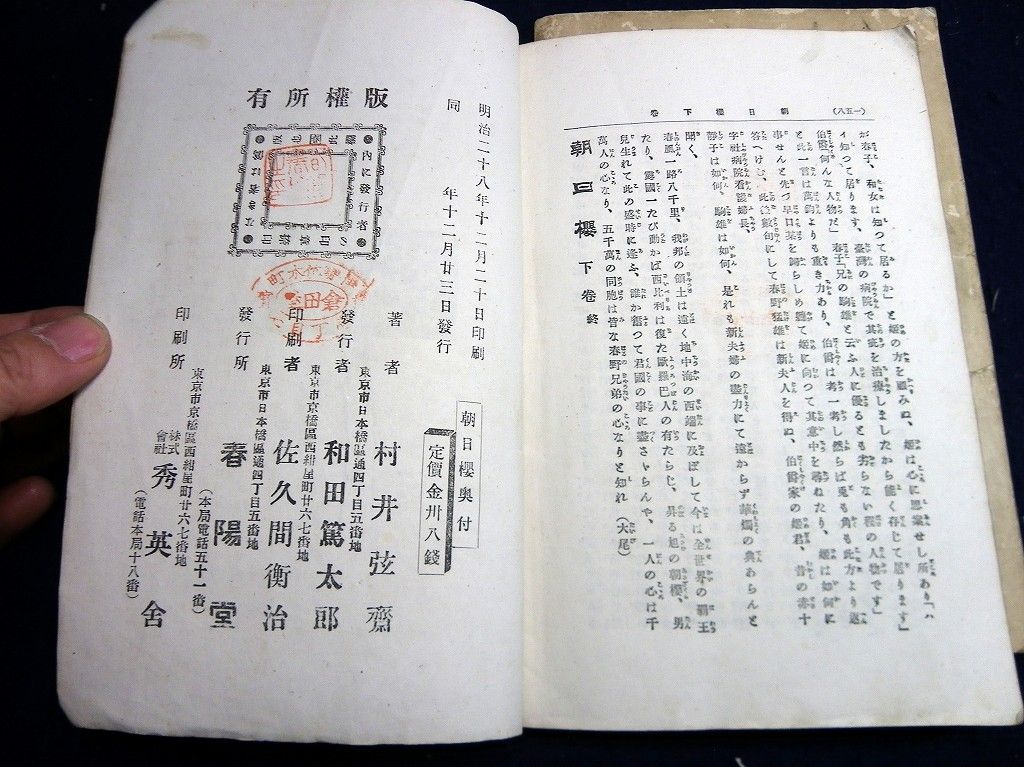 朝日櫻下卷
(一五八)
が春子、和女は知つて居るか」と姫の方を顧みぬ、姫は心に思案せし所あり「ハ
イ知つて居ります、臺灣の病院で其疵を治療しましたから能く存じて居ります」
伯爵「何んな人物だ」春子「兄の駒雄と云ふ人に優るとも劣らない程の人物です」
と此一言は萬鈞よりも重き力あり、伯爵は考へ考へ然らば兎も角も此方より返
事せんと先づ早口某を歸らしめ纏て姫に向つて其意中を尋ねたり、姫は如何に
答へけむ、此後數旬にして春野猛雄は新夫人を得ぬ、伯爵家の姫君、昔の赤十
字社病院看護婦長、
靜子は如何、駒雄は如何、是れも新夫婦の盡力にて遠からず華燭の典あらんと
聞く、
春風一路八千里、我邦の領土は遠く地中海の西端に及ぼして今は全世界の覇王
たり、露國一たび動かば西比利は復た歐羅巴人の有たらじ、昇る旭の朝櫻、男
兒生れて此の盛時に逢ふ、誰か奮つて君國の事に盡さゞらんや、一人の心は千
萬人の心なり、五千萬の同胞は皆な春野兄弟の心なりと知れ(大尾)
朝日櫻下卷終
明治二十八年十二月二十日印刷
同年十二月廿三日發行
版權所有
朝日櫻奥付
定價金卅八錢
著者
村井弦齋
東京市日本橋區通四丁目五番地
發行者
和田篤太郎
東京市京橋區西紺屋町廿六七番地
印刷者
佐久間衡治
東京市日本橋區通四丁目五番地
發行所
春陽堂
(本局電話五十一番)
東京市京橋區西紺屋町廿六七番地
印刷所
株式會社秀英舍
(電話本局十八番)